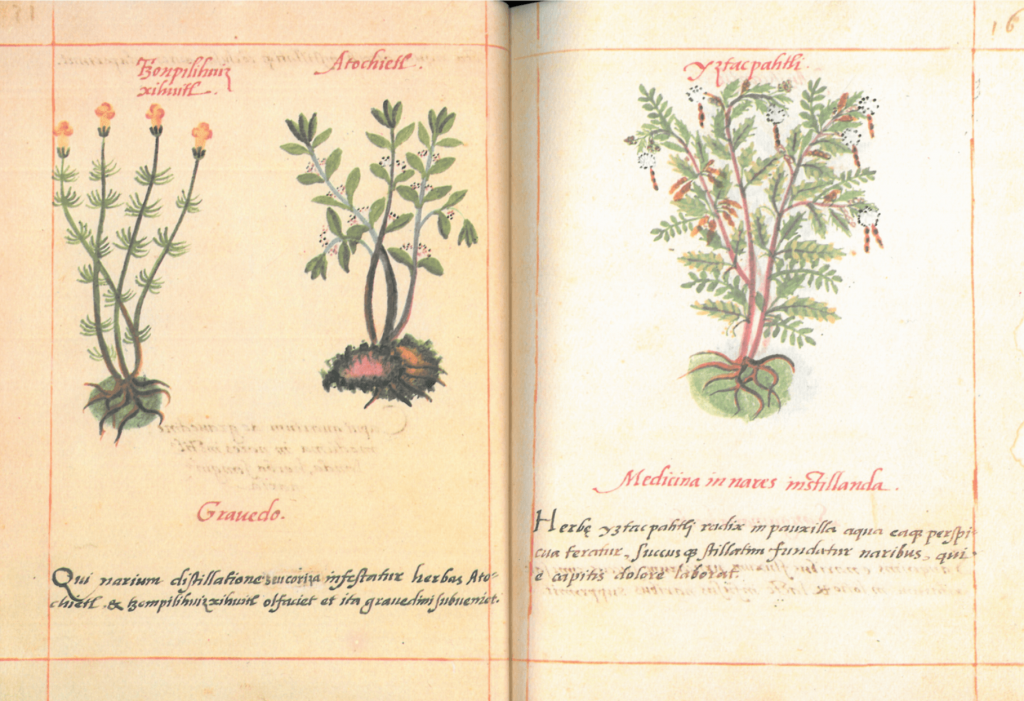 Tzonpilihuiz
xihuitl.
Atochietl.
Grauedo.
Qui narium distillatione seu coriza infestatur herbas Ato=
chietl & tzompilihuizxihuitl olfaciet et ita grauedini subueniet.
16
Yztacpahtli.
Medicina in nares instillanda.
Herbę yztac pahtlj radix in pauxilla aqua eaq; perspi
cua teratur, succusq; stillatim fundatur naribus, qui
e capitis dolore laborat.